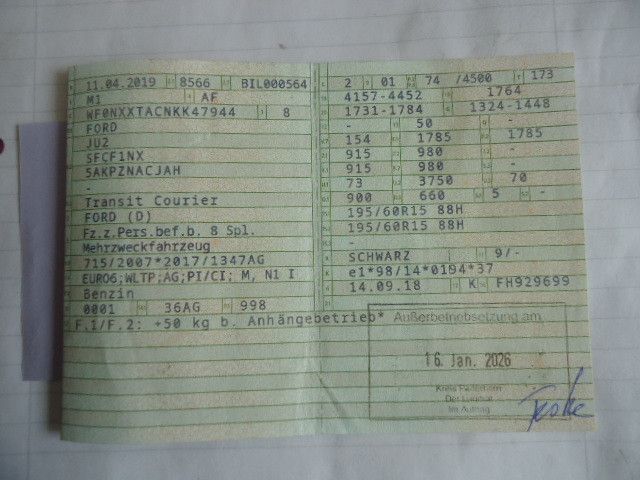 11.04.2019 8566 BIL000564
M1 AF
WF0NXXTACNKK47944 8
FORD
JU2
SFCF1NX
5AKPZNACJAH
-
Transit Courier
FORD (D)
Fz.z.Pers.bef.b. 8 Spl.
Mehrzweckfahrzeug
715/2007*2017/1347AG
EURO6;WLTP;AG;PI/CI; M, N1 I
Benzin
0001 36AG 998
F.1/F.2: +50 kg b. Anhängebetrieb*
2 01 74 /4500 173
4157-4452 1764
1731-1784 1324-1448
- 50 -
154 1785 1785
915 980 -
915 980 -
73 3750 70
900 660 5 -
195/60R15 88H
195/60R15 88H
-
SCHWARZ 9/-
e1*98/14*0194*37
14.09.18 K FH929699
Außerbetriebsetzung am
16. Jan. 2026
Kreis
Der Landrat
Im Auftrag